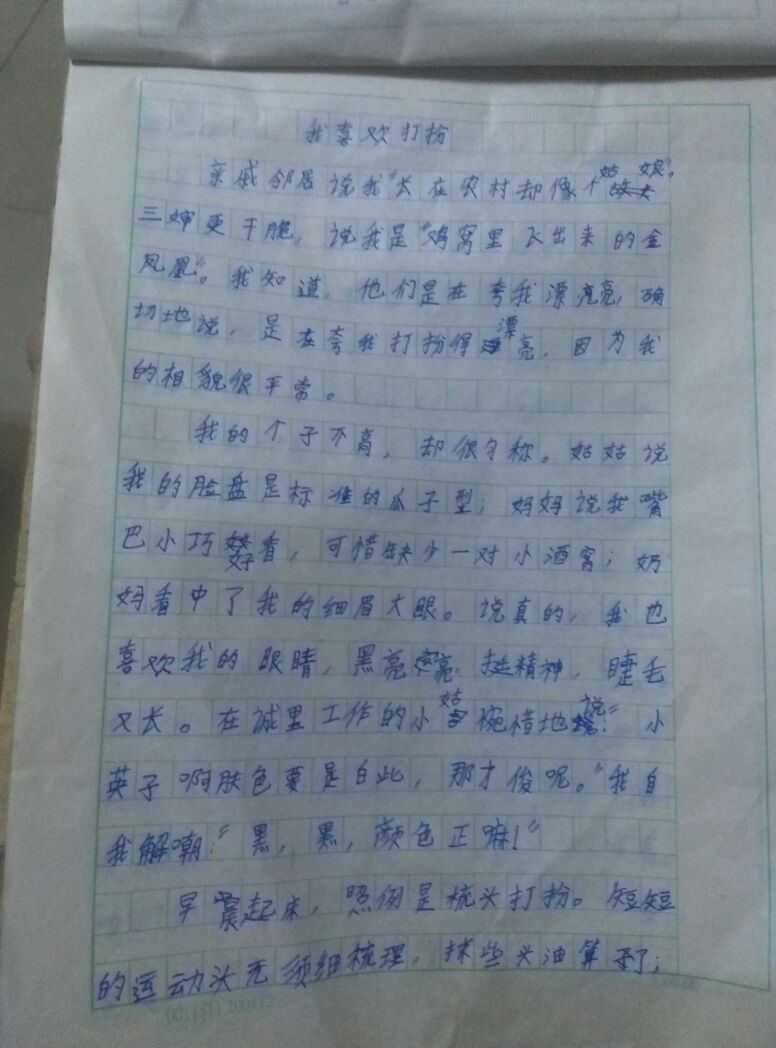 我喜欢打扮
亲戚邻居说我"长在农村却像个姑娘"。
三婶更干脆，说我是"鸡窝里飞出来的金
凤凰"。我知道，他们是在夸我漂亮，确
切地说，是在夸我打扮得漂亮，因为我
的相貌很平常。
我的个子不高，却很匀称。姑姑说
我的脸盘是标准的瓜子型；妈妈说我嘴
巴小巧好看，可惜缺少一对小酒窝；奶
妈看中了我的细眉大眼。说真的，我也
喜欢我的眼睛，黑亮亮，挺精神，睫毛
又长。在诚里工作的小姑惋惜地说："小
英子啊肤色要是白些，那才俊呢。"我自
我解嘲："黑，黑，颜色正嘛！"
早晨起床，照例是梳头打扮。短短
的运动头无须细梳理，抹些头油算了；